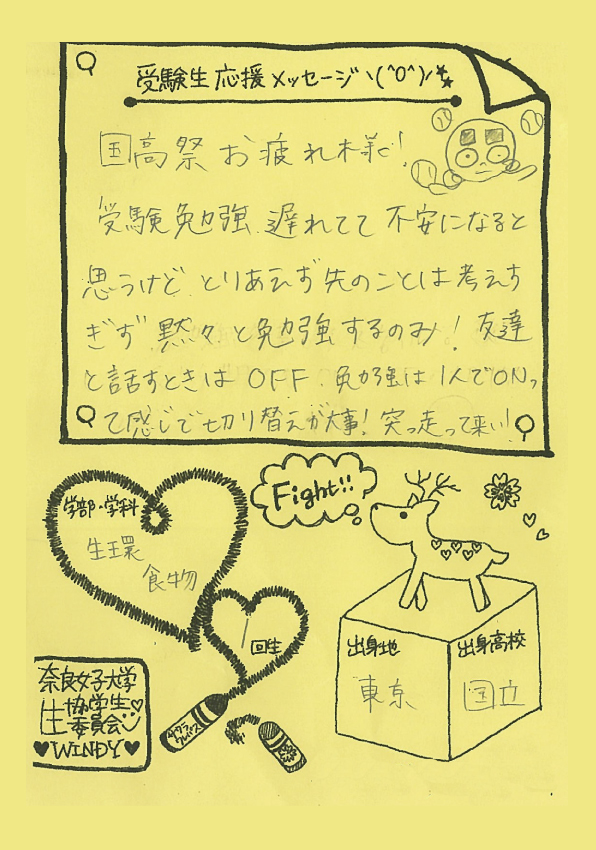 受験生応援メッセージヽ(^O^)ﾉ
国高祭お疲れ様!
受験勉強遅れてて不安になると
思うけど とりあえず先のことは考えす
ぎず黙々と勉強するのみ!友達
と話すときはOFF.勉強は1人でONっ
て感じで切り替えが大事!突っ走って来い!
Fight!!
学部・学科
生環
食物
1回生
出身地
東京
出身高校
国立
サクラ
クレパス
奈良女子大学
生協学生
委員会
♥WINDY♥